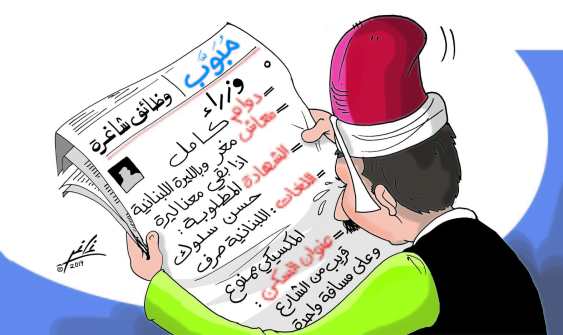 مُبَوَّب
وظائف شاغرة
° وزراء
= دوام كامل
= معاش مغر وبالليرة اللبنانية
اذا بقي معنا ليرة
= الشهادة المطلوبة:
حسن سلوك
= اللغات: اللبنانية صرف
المكسيكي ممنوع
= عنوان السكن:
قريب من الشارع
وعلى مسافة واحدة
© 2019